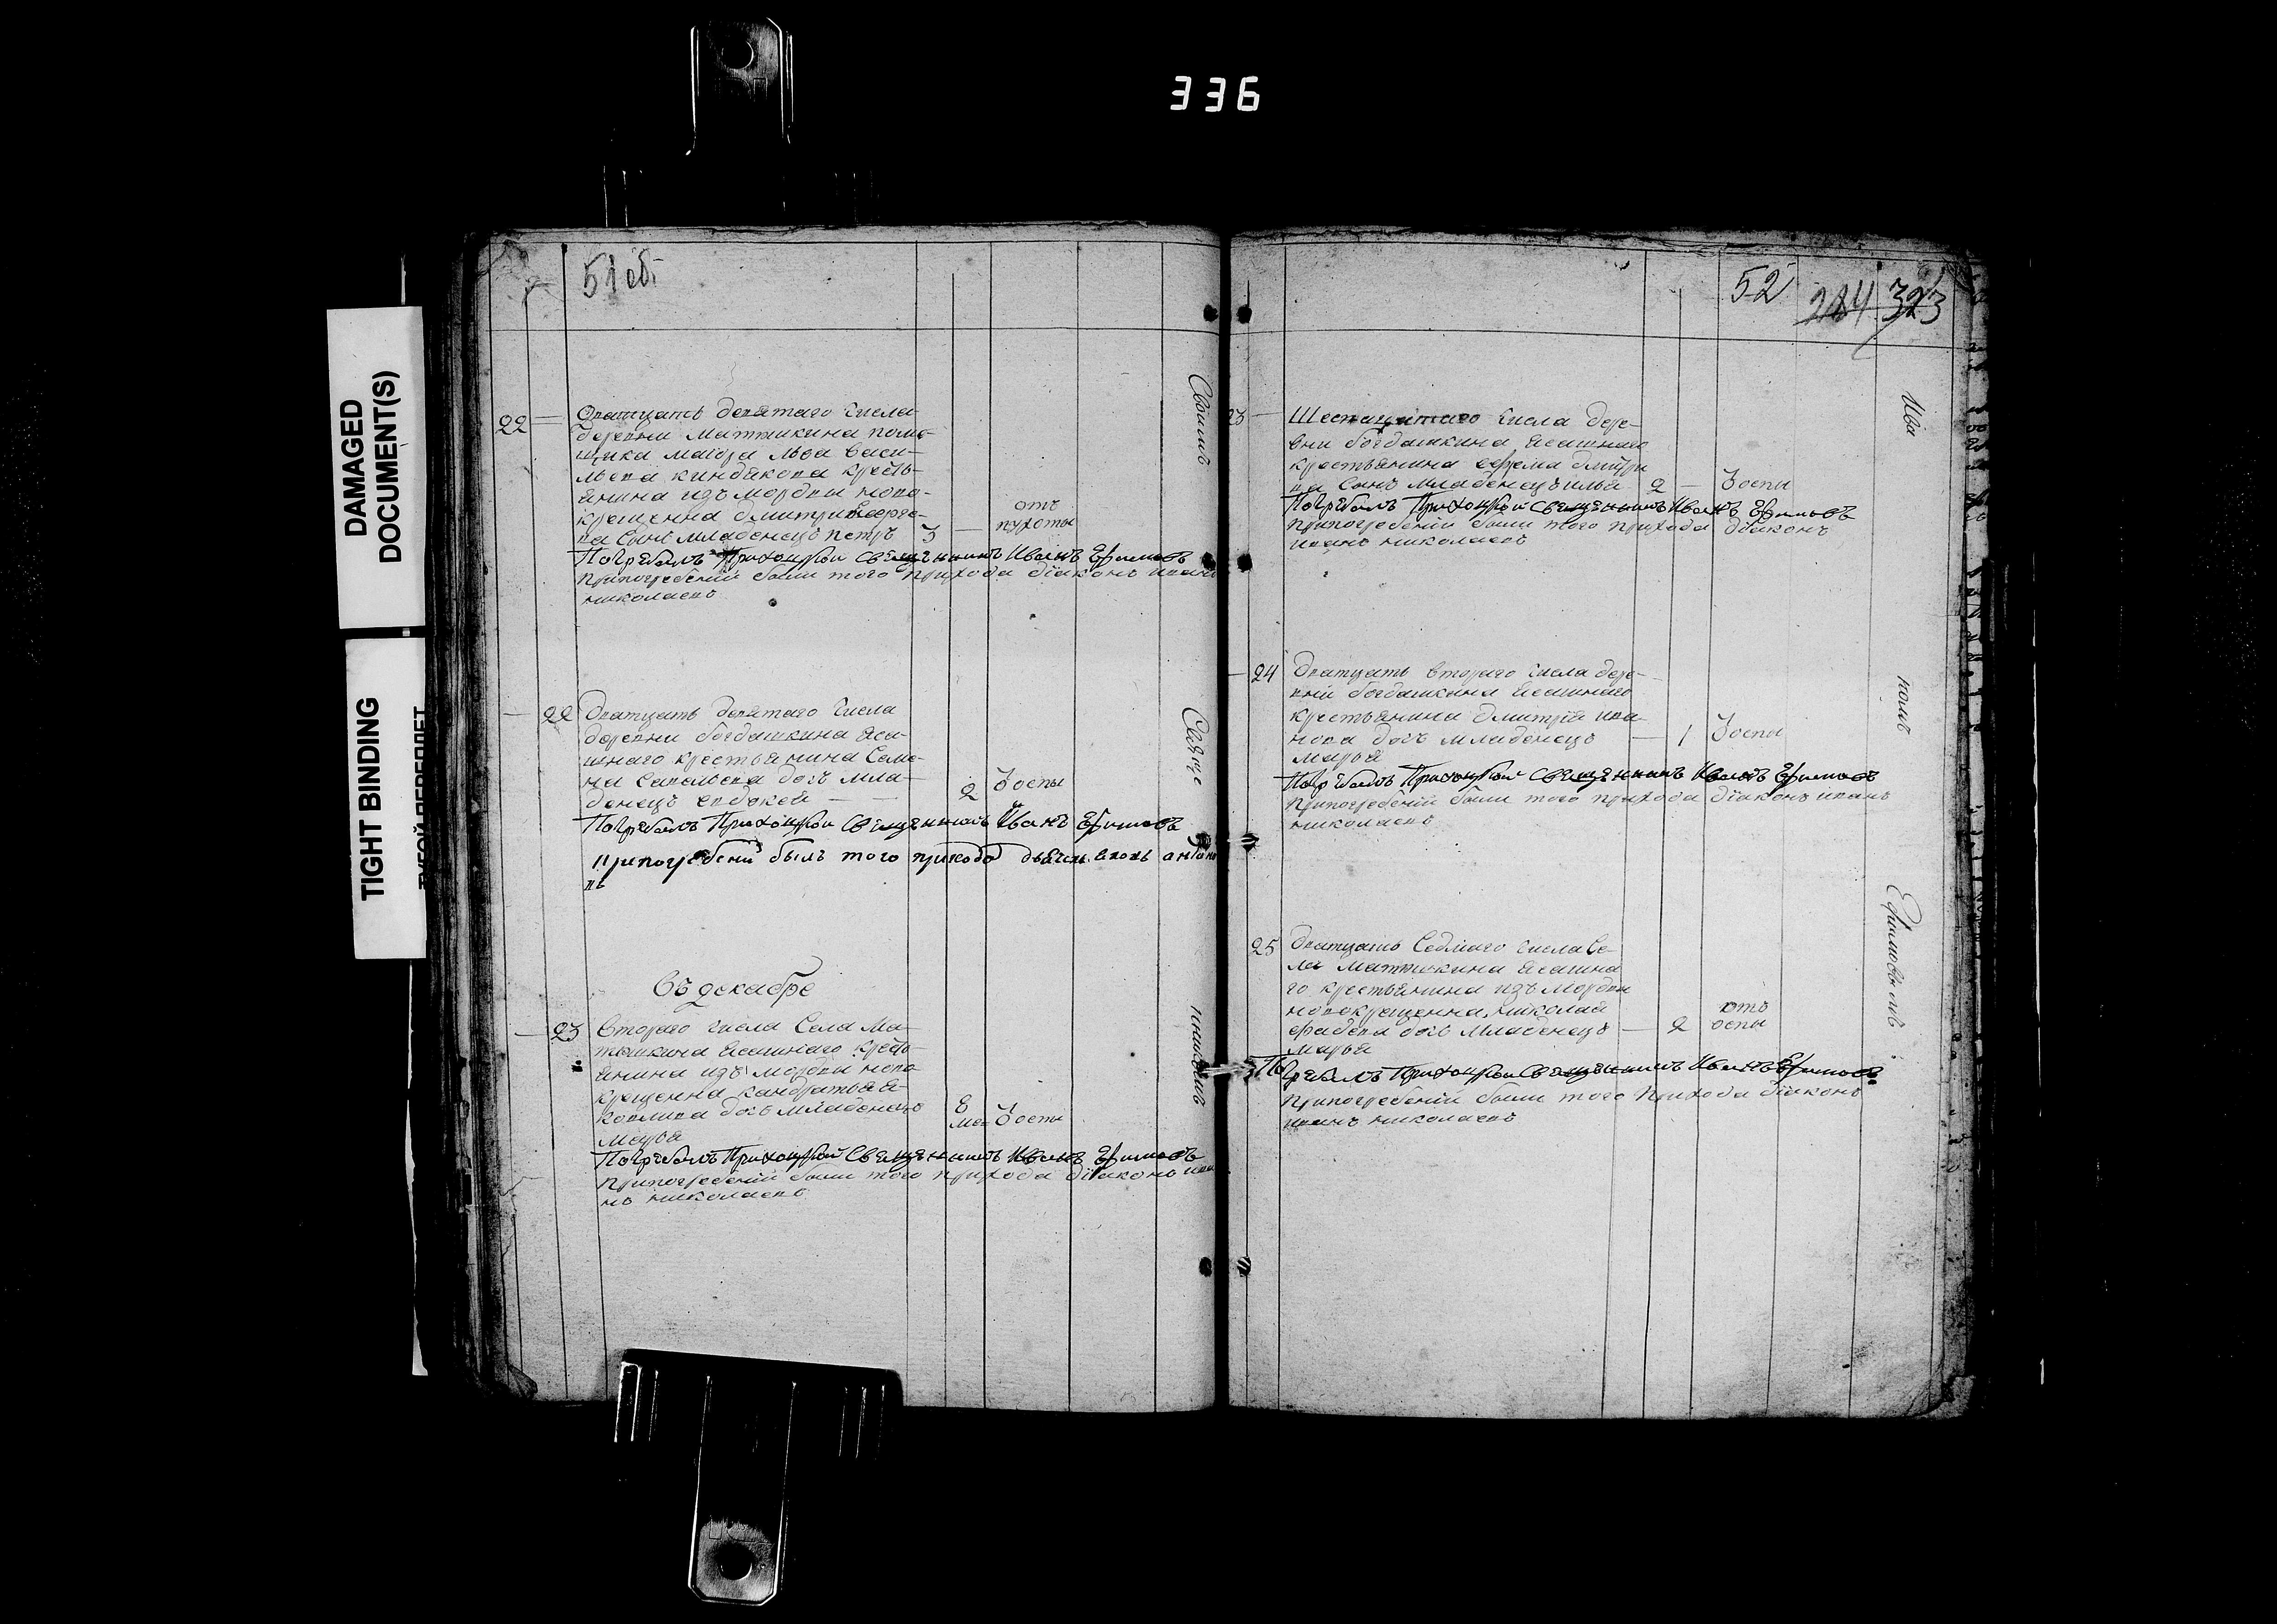 336
DAMAGED
DOCUMENT(S)
TIGHT BINDING
ТУГОЙ ПЕРЕПЛЕТ
51 об.
22
Дватцать девятаго числа
деревни Матюшкина поме-
щика маиора Льва Васи-
льева киндякова кресть-
янина изъ мордвы ново-
крещенна дмитрия
ва сынъ младенецъ петръ 3 —
отъ
пухоты
Погребалъ Приходской священникъ Иванъ Ефимовъ
Припогребении были того прихода диаконъ иванъ
николаевъ
22 Дватцать девятаго числа
деревни богдашкина яса-
шнаго крестьянина Семе-
на Савельева дочь мла-
денецъ евдокея — — 2 З оспы
Погребалъ Приходской священникъ Иванъ Ефимовъ
Припогребении былъ того прихода
Въ декабре
23 Втораго числа Села Ма-
тюшкина ясашнаго кресть-
янина изъ мордвы ново-
крещенна кандратья я-
ковлева дочь младенецъ 8 ме: З оспы
марья
Погребалъ Приходской Священникъ Иванъ Ефимовъ
Припогребении были того прихода диаконъ ива
нъ николаевъ
Своимъ
Свяще
нникомъ
52
284 323
23 Шестнацатаго числа дере-
вни богдашкина ясашнаго
крестьянина ефрема дмитри
ва сынъ младенецъ илья 2 — З оспы
Погребалъ Приходской Священникъ Иванъ Ефимовъ
Припогребении были того прихода диаконъ
иванъ николаевъ
24 Дватцать втораго числа дере-
вни богдашкина ясашнаго
крестьянина дмитрия ива-
нова дочь младенецъ — 1 З оспы
марья
Погребалъ Приходской Священникъ Иванъ Ефимовъ
Припогребении были того прихода диаконъ иванъ
николаевъ
25 Дватцать седмаго числа се-
ла Матюшкина ясашна
го крестьянина изъ мордвы
новокрещенна николая
дочь младенецъ — 2
отъ
оспы
марья
Погребалъ Приходской Священникъ Иванъ Ефимовъ
Припогребении были того прихода диаконъ
иванъ николаевъ
Ива
номъ
Ефимовымъ